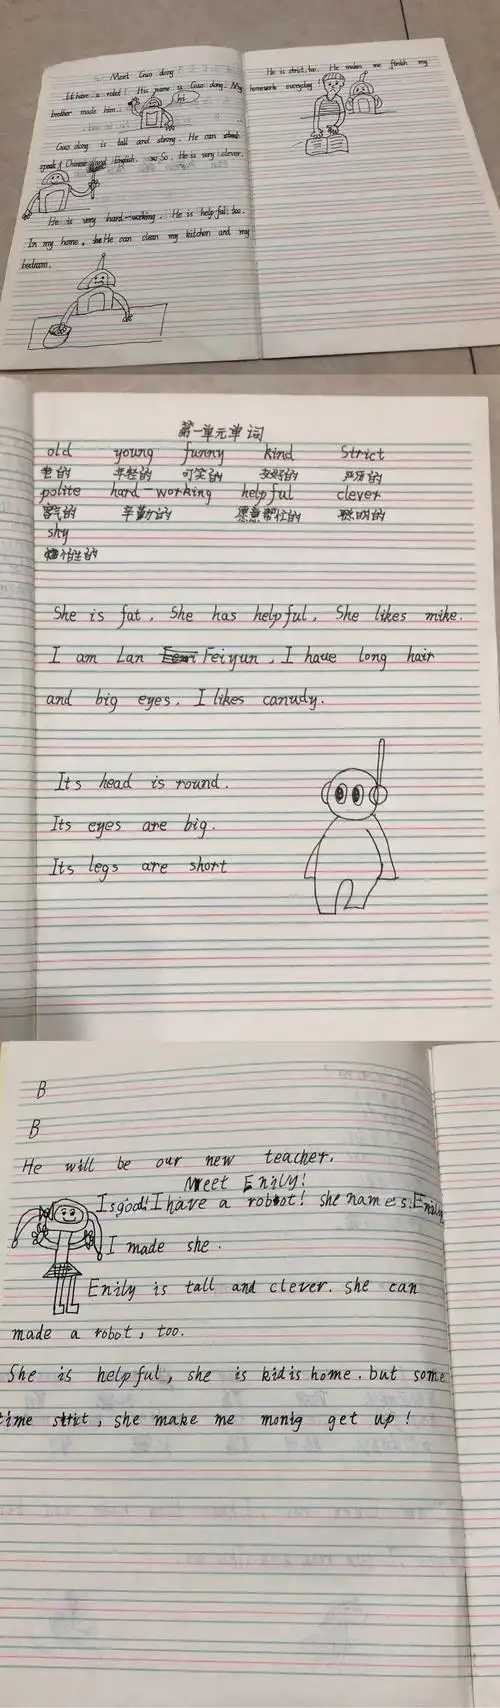 Meet Guo dong
I have a robot! His name is Guo dong. My
brother made him.
hi
Guo dong is tall and strong. He can
speak Chinese and English. So. He is very clever.
He is very hard-working. He is helpful too.
In my home, He can clean my kitchen and my
bedroom.
He is strict, too. He makes me finish my
homework everyday!
第一单元单词
old young funny kind Strict
老的 年轻的 可笑的 友好的 严厉的
polite hard-working helpful clever
客气的 辛勤的 愿意帮忙的 聪明的
shy
怕生的
She is fat, She has helpful, She likes mike.
I am Lan Feiyun, I have long hair
and big eyes. I likes canudy.
Its head is round.
Its eyes are big.
Its legs are short
B
B
He will be our new teacher.
Meet Enily!
Isgood! I have a robot! she names: Enily
I made she.
Enily is tall and clever. she can
made a robot, too.
She is helpful, she is kidis home. but some
time strict, she make me monig get up!